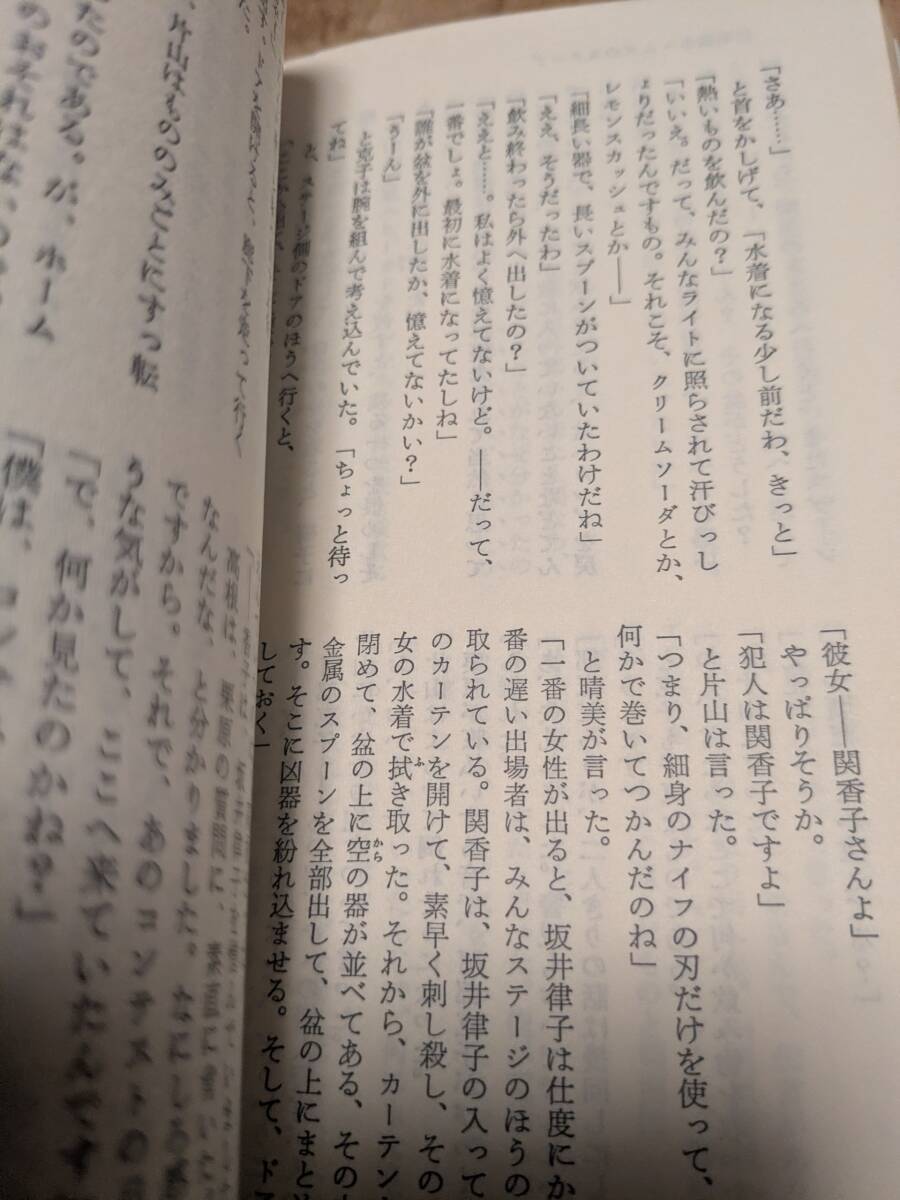 「さあ……」
と首をかしげて、「水着になる少し前だわ、きっと」
「熱いものを飲んだの？」
「いいえ。だって、みんなライトに照らされて汗びっし
ょりだったんですもの。それこそ、クリームソーダとか、
レモンスカッシュとか――」
「細長い器で、長いスプーンがついていたわけだね」
「ええ、そうだったわ」
「飲み終わったら外へ出したの？」
「ええと……。私はよく憶えてないけど。――だって、
一番でしょ。最初に水着になってたしね」
「誰が盆を外に出したか、憶えてないかい？」
「うーん」
と克子は腕を組んで考え込んでいた。「ちょっと待っ
てね」
と、ステージ側のドアのほうへ行くと、
「彼女――関香子さんよ」
やっぱりそうか。
「犯人は関香子ですよ」
と片山は言った。
「つまり、細身のナイフの刃だけを使って、
何かで巻いてつかんだのね」
と晴美が言った。
「一番の女性が出ると、坂井律子は仕度にか
番の遅い出場者は、みんなステージのほうの
取られている。関香子は、坂井律子の入って
のカーテンを開けて、素早く刺し殺し、その
女の水着で拭き取った。それから、カーテン
閉めて、盆の上に空の器が並べてある、その
金属のスプーンを全部出して、盆の上にまと
す。そこに凶器を紛れ込ませる。そして、ド
しておく」
片山はもののみごとにすっ転
たのである。が、ホーム
のおそれはな
高根は、栗原の質問に、素直に
なんだな、と分かりました。なにしろ
ですから。それで、あのコンテストの
うな気がして、ここへ来ていたんです
「で、何か見たのかね？」
「僕は、コン